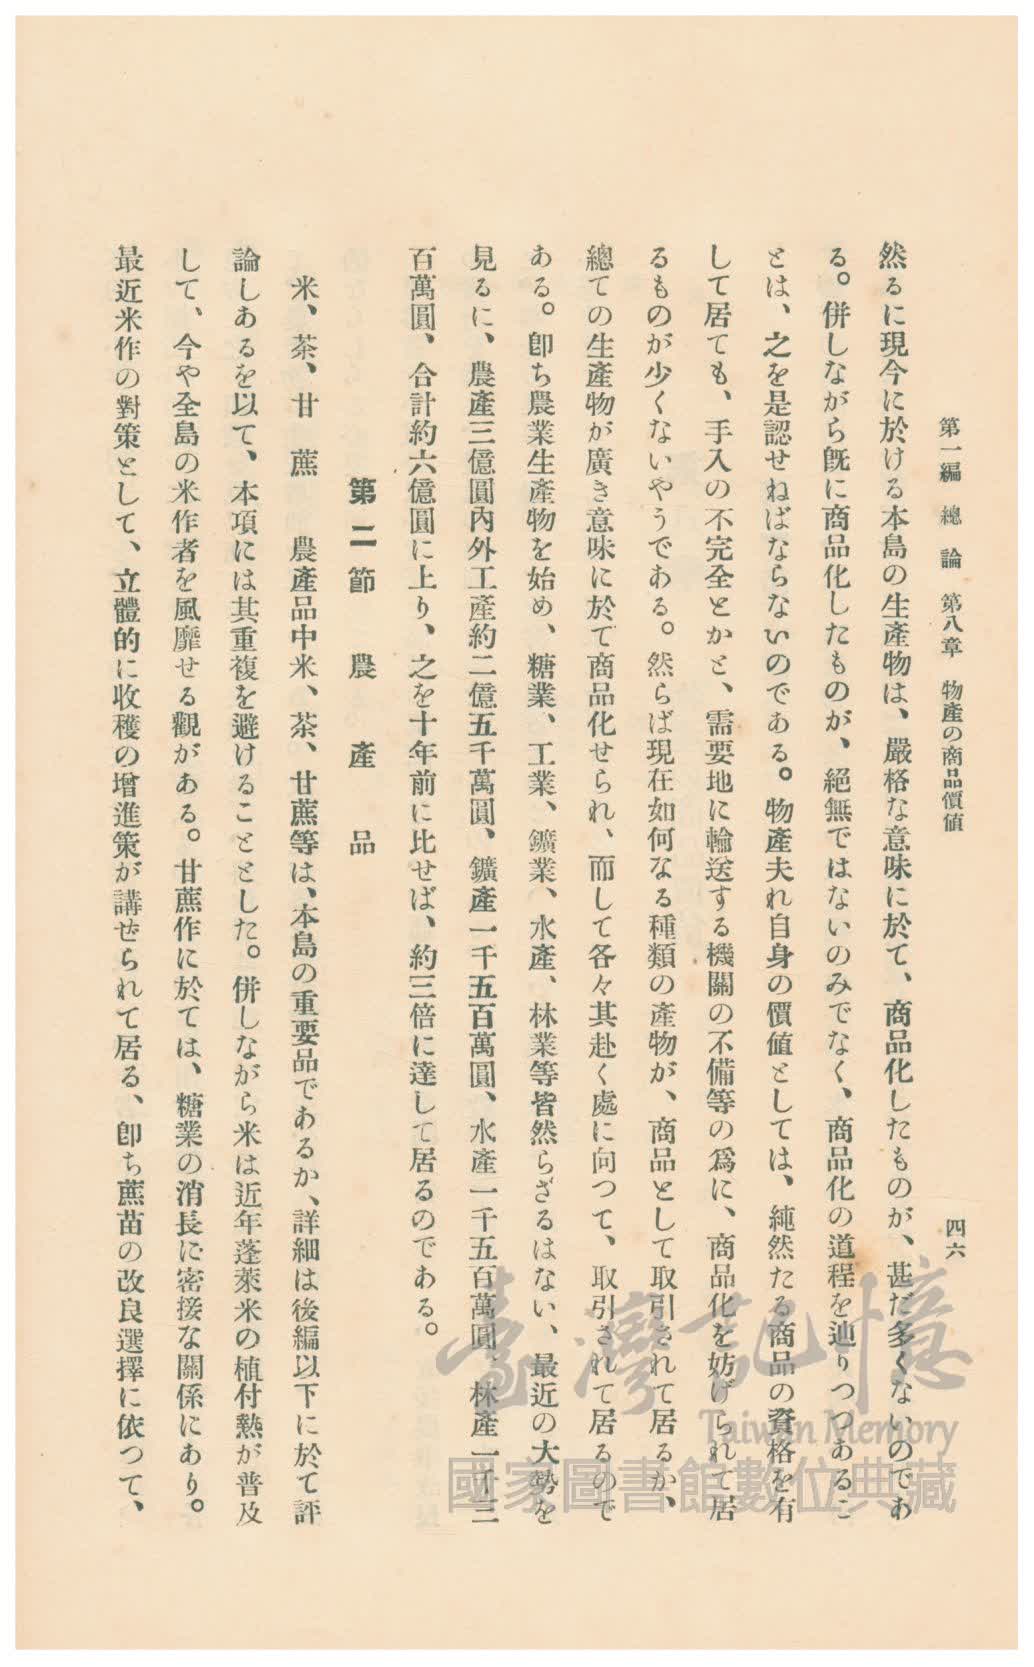 第一編　總　論　第八章　物產の商品價値
四六
然るに現今に於ける本島の生產物は、嚴格な意味に於て、商品化したものが、甚だ多くないのであ
る。併しながら旣に商品化したものが、絕無ではないのみでなく、商品化の道程を辿りつつあるこ
とは、之を是認せねばならないのである。物產夫れ自身の價値としては、純然たる商品の資格を有
して居ても、手入の不完全とかと、需要地に輸送する機關の不備等の爲に、商品化を妨げられて居
るものが少くないやうである。然らば現在如何なる種類の產物が、商品として取引されて居るか、
總ての生產物が廣き意味に於て商品化せられ、而して各々其赴く處に向つて、取引されて居るので
ある。卽ち農業生產物を始め、糖業、工業、鑛業、水產、林業等皆然らざるはない、最近の大勢を
見るに、農產三億圓內外工產約二億五千萬圓、鑛產一千五百萬圓、水產一千五百萬圓、林產一千三
百萬圓、合計約六億圓に上り、之を十年前に比せば、約三倍に達して居るのである。
第二節　農　產　品
米、茶、甘　蔗　農產品中米、茶、甘蔗等は、本島の重要品であるか、詳細は後編以下に於て評
論しあるを以て、本項には其重複を避けることとした。併しながら米は近年蓬萊米の植付熱が普及
して、今や全島の米作者を風靡せる觀がある。甘蔗作に於ては、糖業の消長に密接な關係にあり。
最近米作の對策として、立體的に收穫の增進策が講ぜられて居る、卽ち蔗苗の改良選擇に依つて、
臺灣記憶
Taiwan Memory
國家圖書館數位典藏